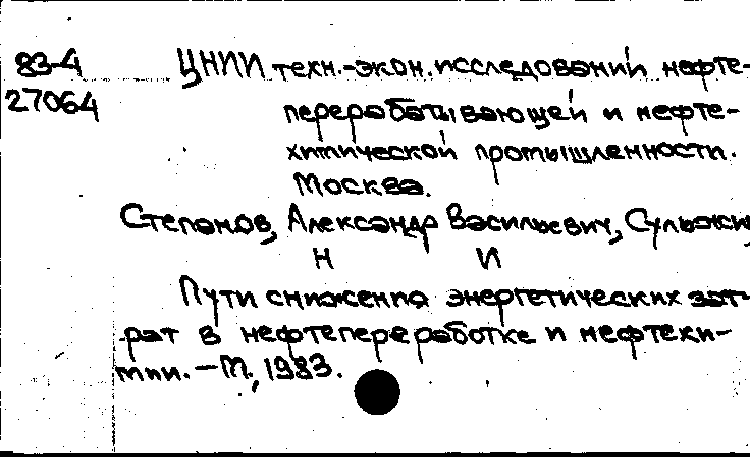 83-4 ЦНИИ техн.-экон. исследований нефте-
27064 перерабатывающей и нефте-
химической промышленности.
Москва.
Степанов, Александр Васильевич,
Н И
Пути снижения энергетических зат-
рат в нефтепереработке и нефтехи-
мии. – М., 1983.